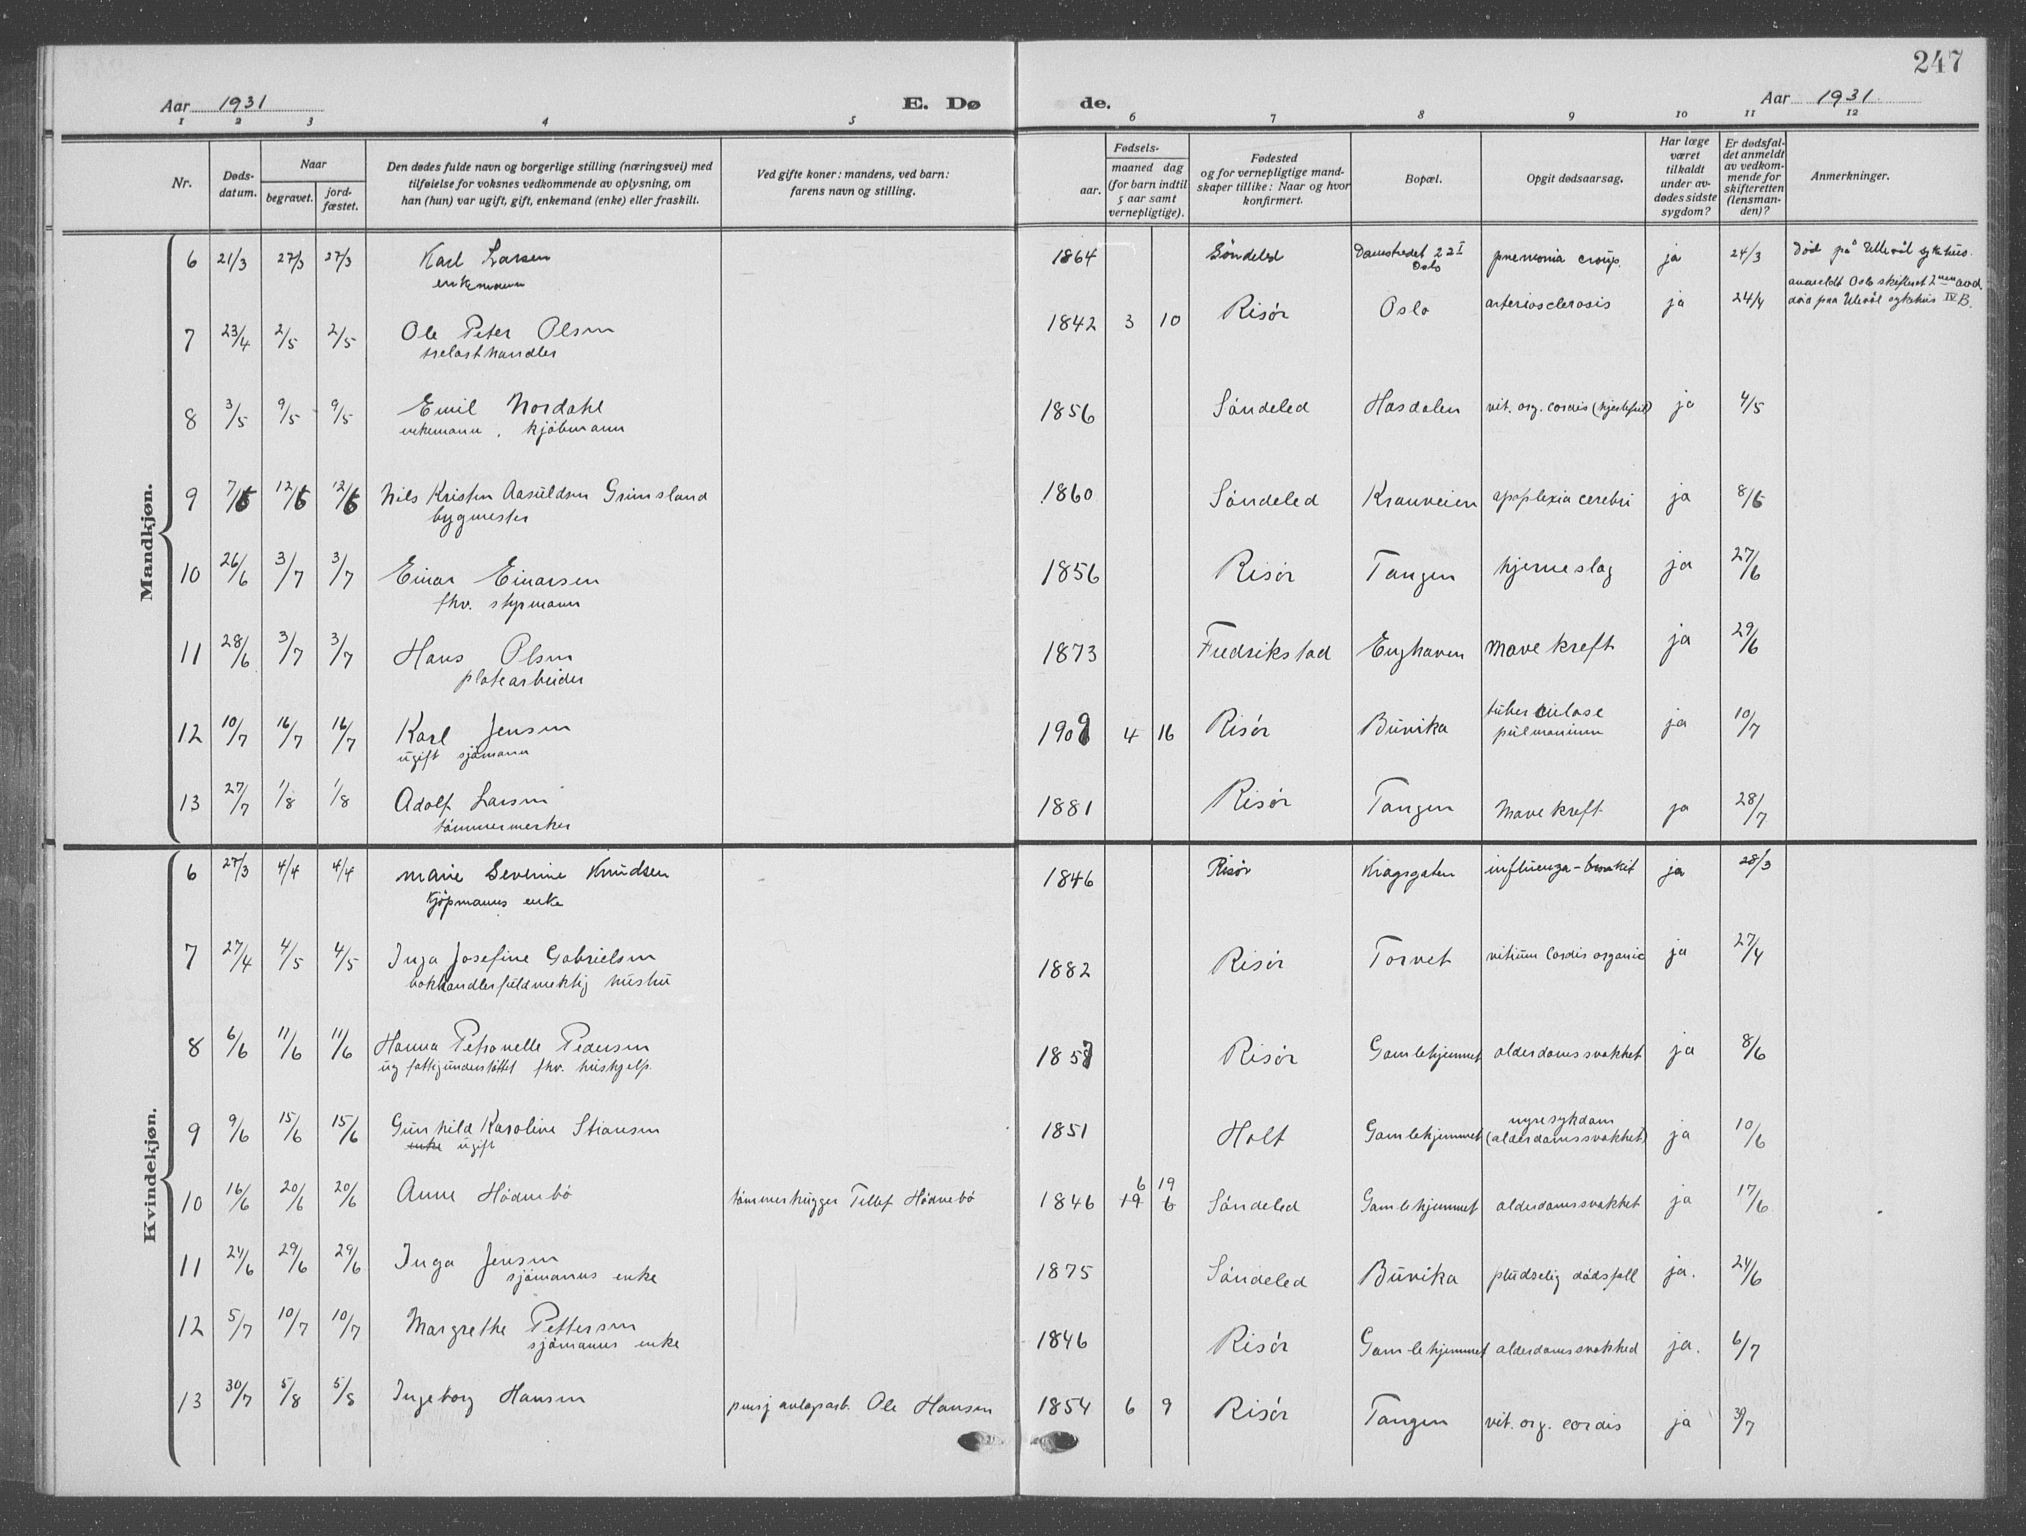 247
Aar 1931 E. Dø de. Aar 1931
1 2 3 4 5 6 7 8 9 10 11 12
Nr.
Døds-
datum.
Naar
begravet.
jord-
fæstet.
Den dødes fulde navn og borgerlige stilling (næringsvei) med
tilføielse for voksnes vedkommende av oplysning, om
han (hun) var ugift, gift, enkemand (enke) eller fraskilt.
Ved gifte koner: mandens, ved barn:
farens navn og stilling.
Fødsels-
aar.
maaned dag
(for barn indtil
5 aar samt
vernepligtige).
Fødested
og for vernepligtige mand-
skaper tillike: Naar og hvor
konfirmert.
Bopæl.
Opgit dødsaarsag.
Har læge
været
tilkaldt
under av-
dødes sidste
sygdom?
Er dødsfal-
det anmeldt
av vedkom-
mende for
skifteretten
(lensman-
den)?
Anmerkninger.
Mandkjøn.
6 21/3 27/3 27/3 Karl Larsen 1864 Søndeled Damstredet 22 I pneumonia croup. ja 24/3 Død på Ullevål sykehus.
enkemann Oslo
anmeldt Oslo skifteret 2nen avd.
7 23/4 2/5 2/5 Ole Peter Olsen 1842 3 10 Risør Oslo arteriosclerosis ja 24/4 død paa Ullevål sykehus IV B.
trelasthandler
8 3/5 9/5 9/5 Emil Nordahl 1856 Søndeled Hasdalen vit. org. cordis (hjertefeil) ja 4/5
enkemann, kjøbmann
9 7/6 12/6 12/6 Nils Kristen Aasuldsen Grimsland 1860 Søndeled Kranveien apoplexia cerebri ja 8/6
bygmester
10 26/6 3/7 3/7 Einar Einarsen 1856 Risør Tangen hjerneslag ja 27/6
fhv. styrmann
11 28/6 3/7 3/7 Hans Olsen 1873 Fredrikstad Enghaven Mave kreft ja 29/6
platearbeider
12 10/7 16/7 16/7 Karl Jensen 1909 4 16 Risør Buvika tuberculose ja 10/7
ugift sjømann pulmonium
13 27/7 1/8 1/8 Adolf Larsen 1881 Risør Tangen Mavekreft ja 28/7
tømmermerker
Kvindekjøn.
6 27/3 4/4 4/4 Marie Severine Knudsen 1846 Risør Kragsgaten influenza-bronkit ja 28/3
Kjøpmanns enke
7 27/4 4/5 4/5 Inga Josefine Gabrielsen 1882 Risør Torvet vitium cordis organic ja 27/4
bokhandlerfuldmektig hustru
8 6/6 11/6 11/6 Hanna Petronelle Pedersen 1857 Risør Gamlehjemmet alderdomssvakhet ja 8/6
ug fattigunderstøttet fhv. hushjelp.
9 9/6 15/6 15/6 Gunhild Karoline Stiansen 1851 Holt Gamlehjemmet nyresykdom ja 10/6
enke ugift (alderdomssvakhet)
10 16/6 20/6 20/6 Anne Hødnebø tømmerhugger Tellef Hødnebø 1846 6 19 Søndeled Gamlehjemmet alderdomssvakhet ja 17/6
19 6
11 24/6 29/6 29/6 Inga Jensen 1875 Søndeled Buvika pludselig dødsfall ja. 24/6
sjømanns enke
12 5/7 10/7 10/7 Margrethe Pettersen 1846 Risør Gamlehjemmet alderdomssvakhed ja. 6/7
sjømanns enke
13 30/7 5/8 5/8 Ingeborg Hansen pensj anlagsarb. Ole Hansen 1854 6 9 Risør Tangen vit. org. cordis ja 30/7